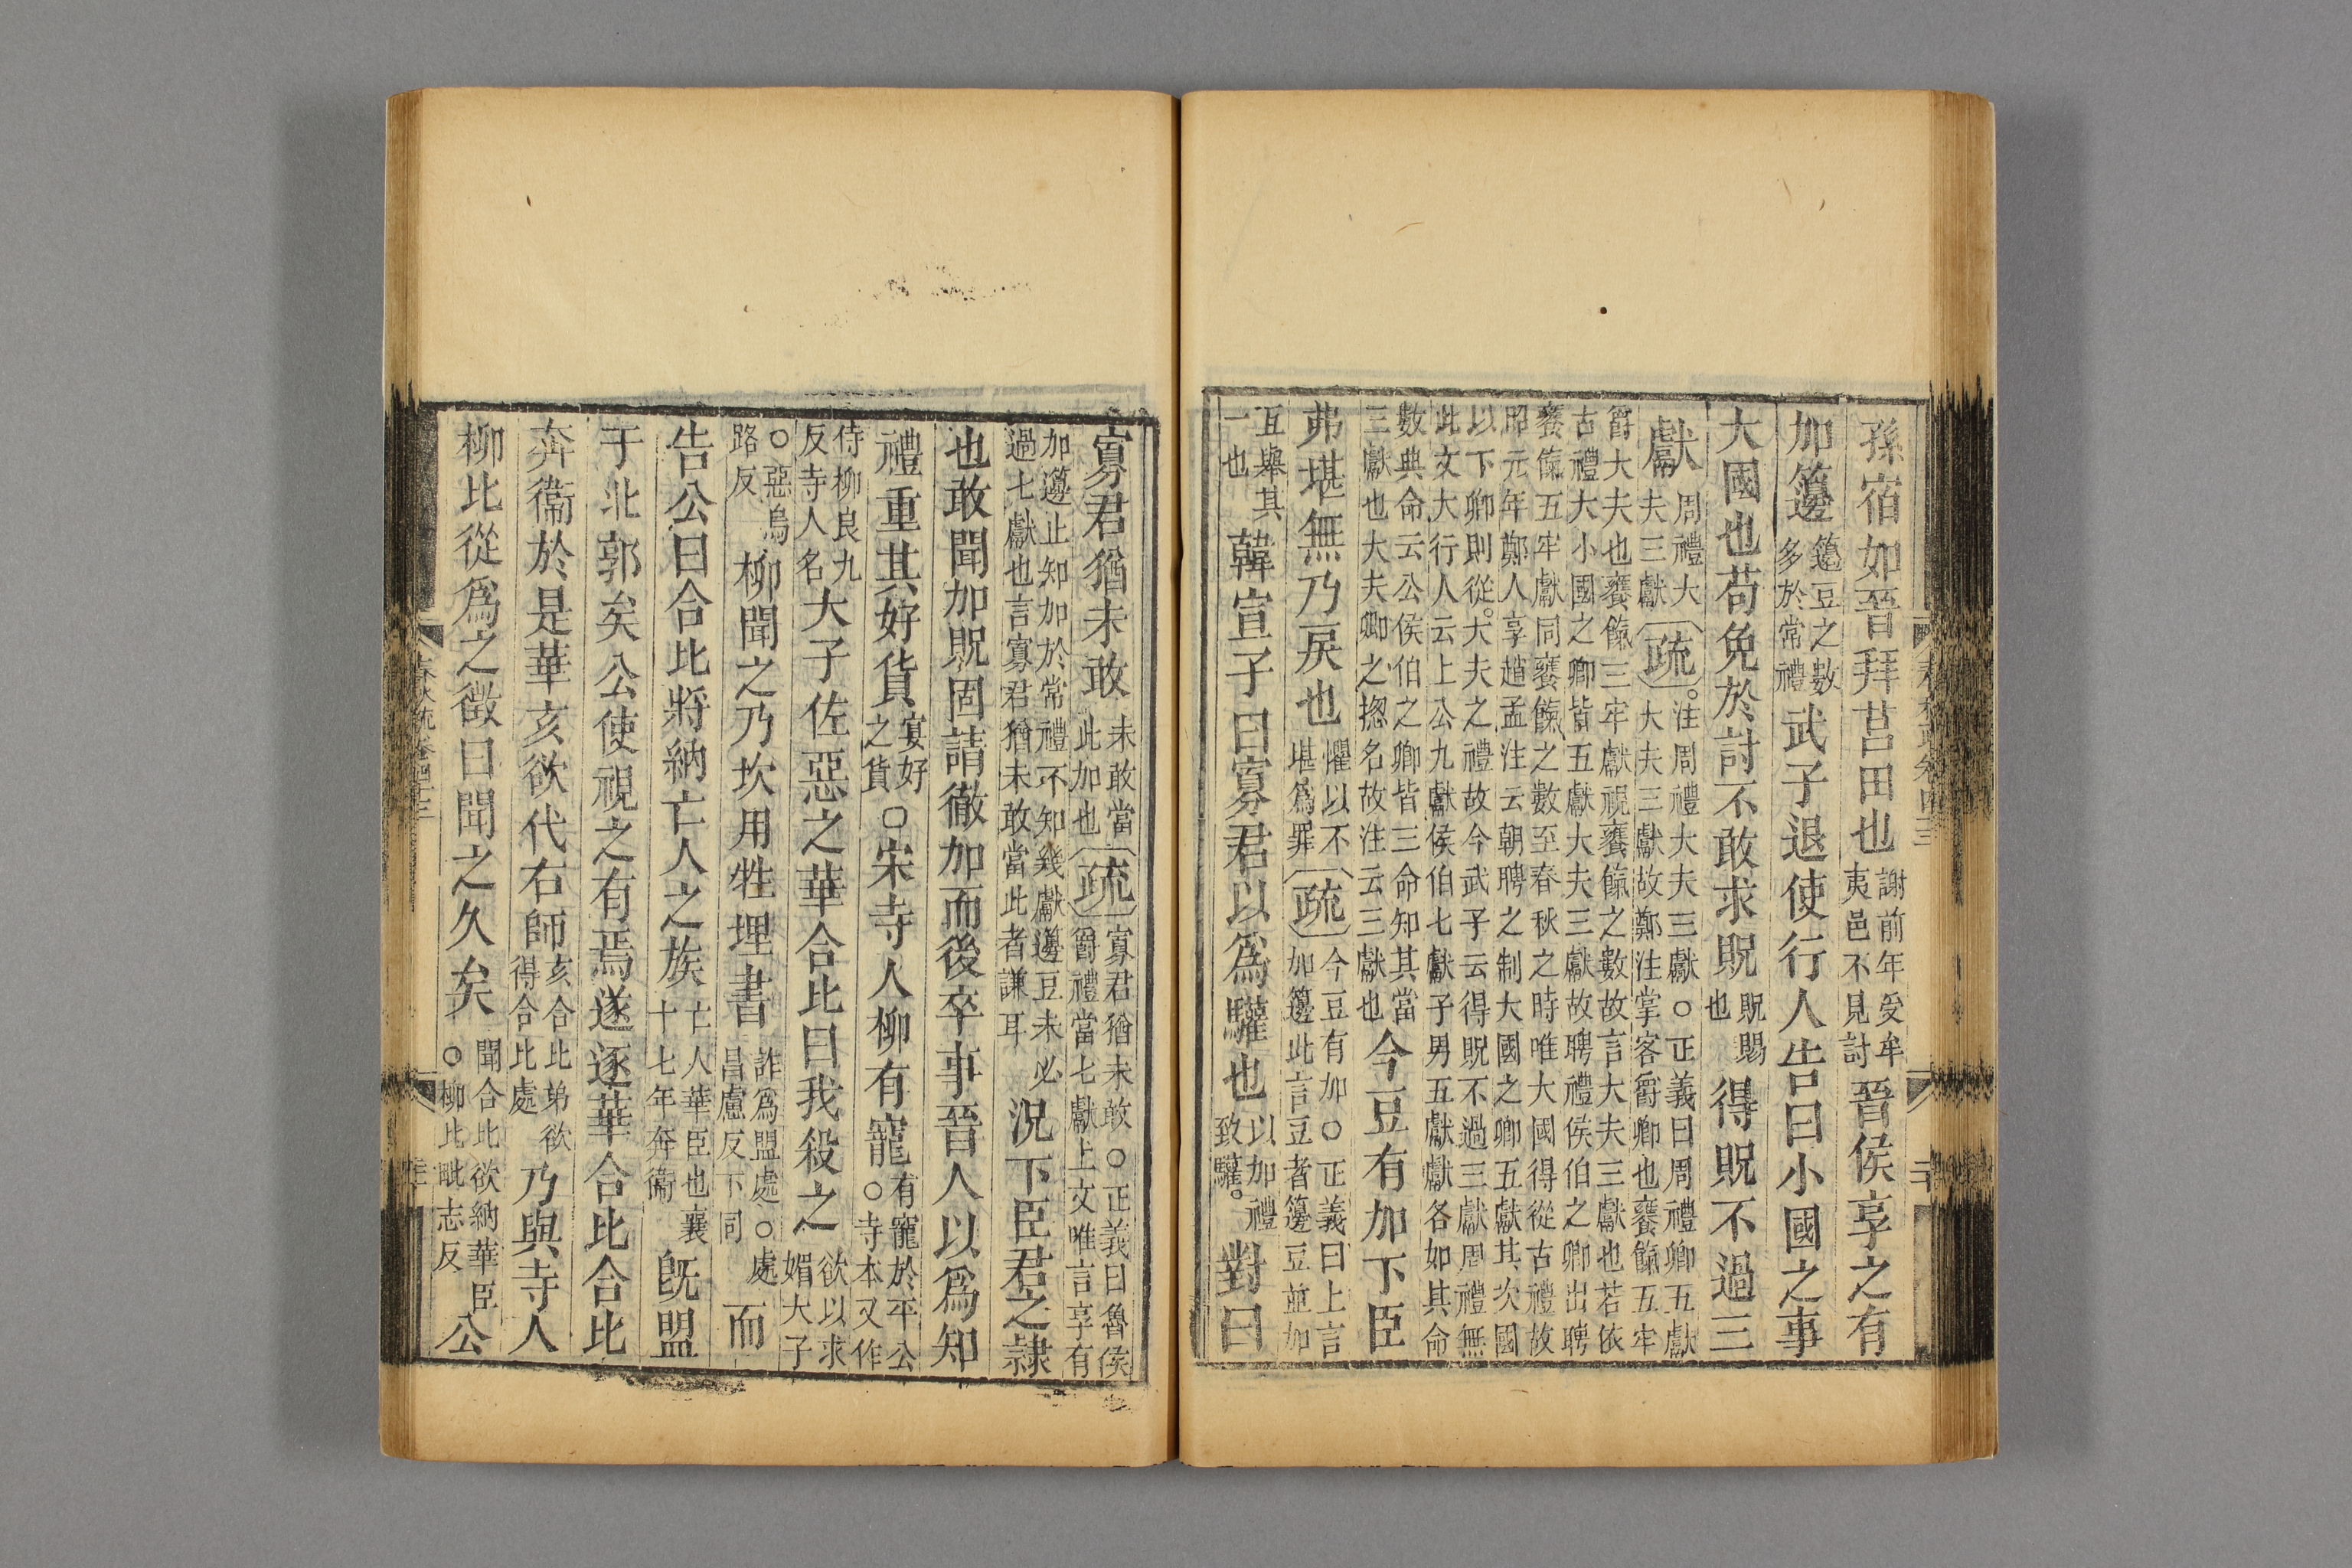 孫宿如晉拜莒田也謝前年受牟夷邑不見討晉侯享之有
加籩籩豆之數多於常禮武子退使行人告曰小國之事
大國也苟免於討不敢求貺貺賜也得貺不過三
獻周禮大夫三獻疏注周禮大夫三獻○正義曰周禮卿五獻大夫三獻故鄭注掌客爵卿也饔餼五牢
爵大夫也饔餼三牢獻視饔餼之數故言大夫三獻也若依
古禮大小國之卿皆五獻大夫三獻故聘禮侯伯之卿出聘
饔餼五牢獻同饔餼之數至春秋之時唯大國得從古禮故
昭元年鄭人享趙孟注云朝聘之制大國之卿五獻其次國
以下卿則從大夫之禮故今武子云得貺不過三獻周禮無
此文大行人云上公九獻侯伯七獻子男五獻獻各如其命
數典命云公侯伯之卿皆三命知其當
三獻也大夫卿之揔名故注云三獻也今豆有加下臣
弗堪無乃戾也懼以不堪爲罪疏今豆有加○正義曰上言加籩此言豆者籩豆並加
互舉其一也韓宣子曰寡君以爲驩也以加禮致驩對曰
春秋疏卷四三
寡君猶未敢未敢當此加也疏寡君猶未敢○正義曰魯侯爵禮當七獻上文唯言享有
加籩止知加於常禮不知幾獻籩豆未必過七獻也言寡君猶未敢當此者謙耳況下臣君之隸
也敢聞加貺固請徹加而後卒事晉人以爲知
禮重其好貨宴好之貨○宋寺人柳有寵有寵於平公○寺本又作
侍柳良九反寺人名大子佐惡之華合比曰我殺之欲以求媚大子
○惡烏路反柳聞之乃坎用牲埋書詐爲盟處○處昌慮反下同而
告公曰合比將納亡人之族亡人華臣也襄十七年奔衞旣盟
于北郭矣公使視之有焉遂逐華合比合比
奔衞於是華亥欲代右師亥合比弟欲得合比處乃與寺人
柳比從爲之徵曰聞之久矣聞合比欲納華臣○柳比毗志反公